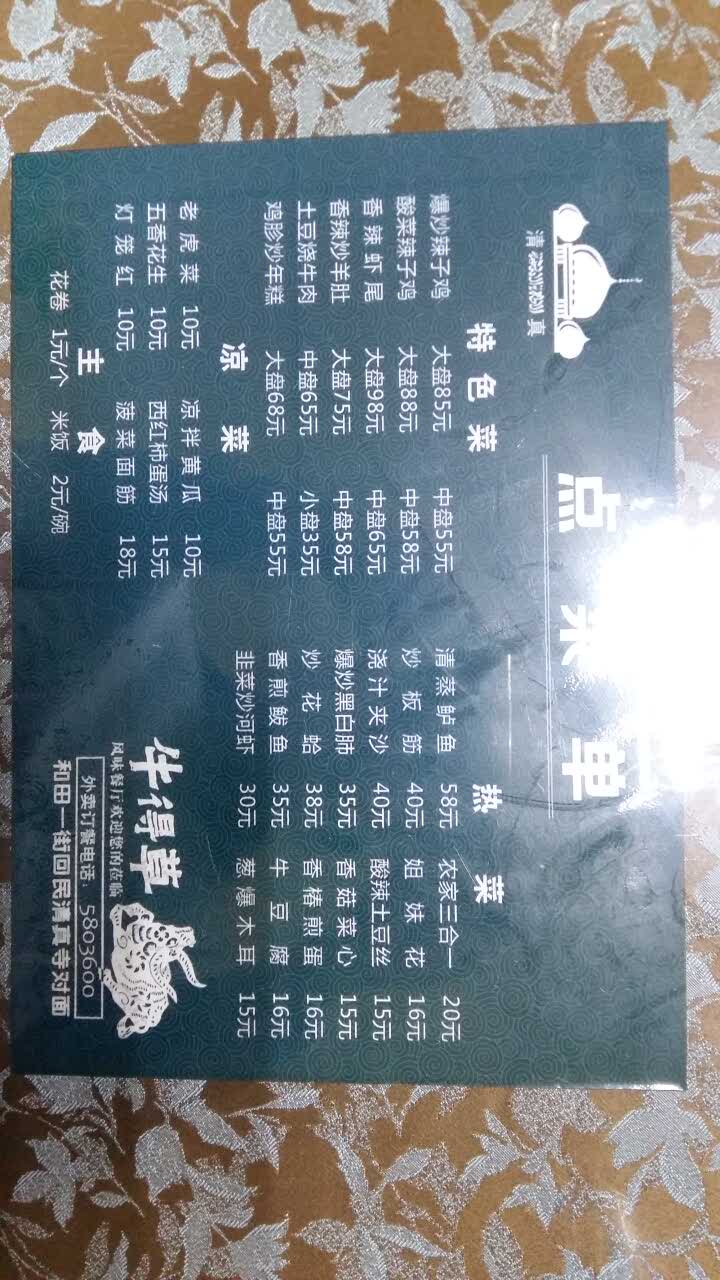 清 真
点菜单
特色菜
爆炒辣子鸡 大盘85元 中盘55元
酸菜辣子鸡 大盘88元 中盘58元
香辣虾尾 大盘98元 中盘65元
香辣炒羊肚 大盘75元 中盘58元
土豆烧牛肉 中盘65元 小盘35元
鸡胗炒年糕 大盘68元 中盘55元
凉菜
老虎菜 10元 凉拌黄瓜 10元
五香花生 10元 西红柿蛋汤 15元
灯笼红 10元 菠菜面筋 18元
主食
花卷 1元/个 米饭 2元/碗
热菜
清蒸鲈鱼 58元 农家三合一 20元
炒板筋 40元 姐妹花 16元
浇汁夹沙 40元 酸辣土豆丝 15元
爆炒黑白肺 35元 香菇菜心 15元
炒花蛤 38元 香椿煎蛋 16元
香煎鲅鱼 35元 牛豆腐 16元
韭菜炒河虾 30元 葱爆木耳 15元
牛得草
风味餐厅欢迎您的莅临
外卖订餐电话：5803600
和田一街回民清真寺对面